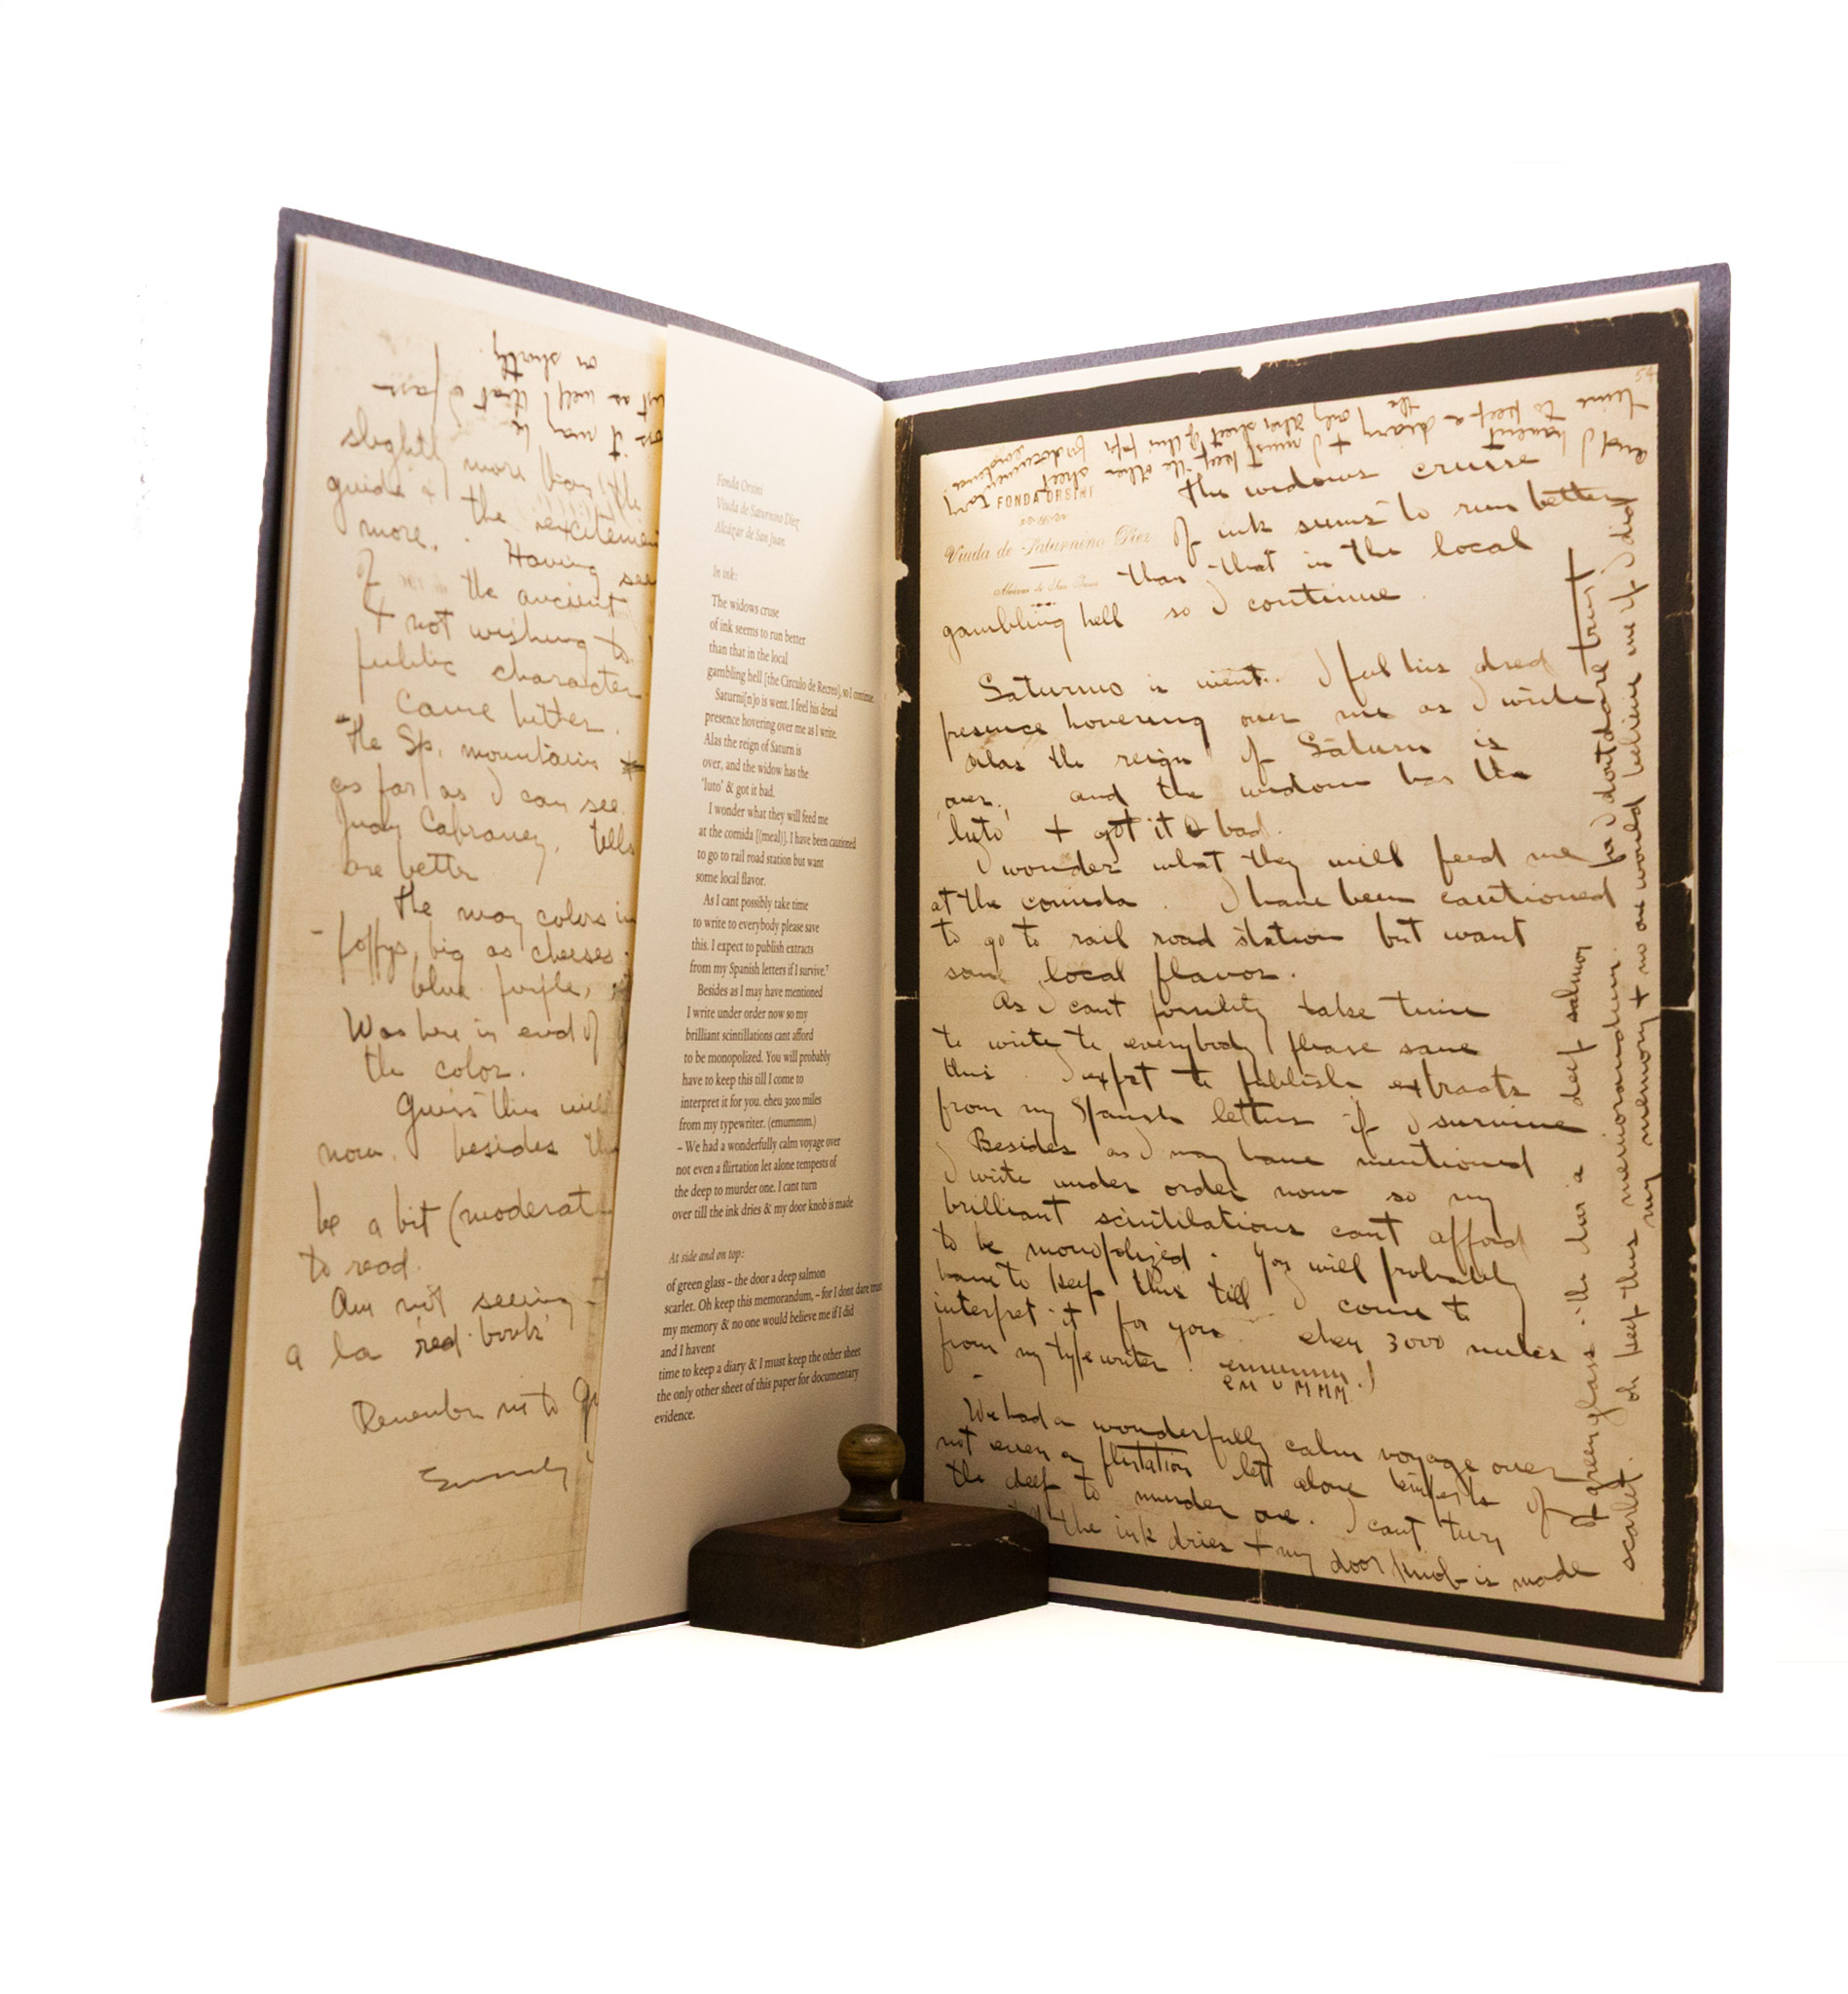 on shortly.
just as well) that I pass
ors it may be
slightly more than the
guide & the excitemen
more. Having see
of the ancient
& not wishing to
public character
Came hither.
The Sp. mountains
as far as I can see.
tells
are better
The may colors in
- poppys, big as cheeses.
blue purple,
Was here in end of
the color.
Guess this will
now. besides th
be a bit (moderat
to read.
Am not seeing
a la 'red-book'
Remember me to
Fonda Orsini
Viuda de Saturnino Diez
Alcázar de San Juan
In ink:
The widows cruse
of ink seems to run better
than that in the local
gambling hell [the Circulo de Recreo], so I continue.
Saturni[n]o is went. I feel his dread
presence hovering over me as I write.
Alas the reign of Saturn is
over, and the widow has the
'luto' & got it bad.
I wonder what they will feed me
at the comida [(meal)]. I have been cautioned
to go to rail road station but want
some local flavor.
As I cant possibly take time
to write to everybody please save
this. I expect to publish extracts
from my Spanish letters if I survive.⁷
Besides as I may have mentioned
I write under order now so my
brilliant scintillations cant afford
to be monopolized. You will probably
have to keep this till I come to
interpret it for you. eheu 3000 miles
from my typewriter. (emummm.)
– We had a wonderfully calm voyage over
not even a flirtation let alone tempests of
the deep to murder one. I cant turn
over till the ink dries & my door knob is made
At side and on top:
of green glass – the door a deep salmon
scarlet. Oh keep this memorandum, – for I dont dare trust
my memory & no one would believe me if I did
and I havent
time to keep a diary & I must keep the other sheet
the only other sheet of this paper for documentary
evidence.
54
and I havent
time to keep a diary & I must keep the other sheet
the only other sheet of this paper for documentary
evidence!
FONDA ORSINI
Viuda de Saturnino Diez
Alcázar de San Juan
The widows cruise
of ink seems to run better
than that in the local
gambling hell so I continue.
Saturnio is went. I feel his dred
presence hovering over me as I write
alas the reign of Saturn is
over, and the widow has the
'luto' + got it bad.
I wonder what they will feed me
at the comida. I have been cautioned
to go to rail road station but want
some local flavor.
As I cant possibly take time
to write to everybody please save
this. I expect to publish extracts
from my Spanish letters if I survive
Besides as I may have mentioned
I write under order now so my
brilliant scintilations cant afford
to be monopolized. You will probably
have to keep this till I come to
interpret it for you. eheu 3000 miles
from my typewriter. emummm.)
EMUMMM.
–
We had a wonderfully calm voyage over
not even a flirtation lett alone tempests of
the deep to murder one. I cant turn
till the ink dries + my door knob is made
of green glass - the door a deep salmon
scarlet. oh keep this memorandum.
for I dont dare trust
my memory + no one would believe me if I did